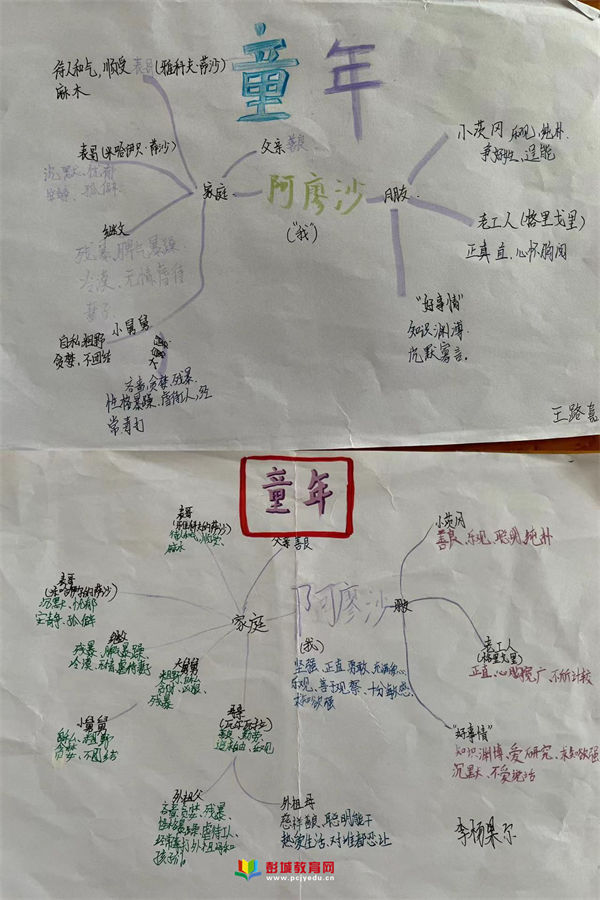 童年
待人和气,顺受 表哥(雅科夫·萨沙)
麻木
表哥(米哈伊尔·萨沙)
沉默、忧郁
孤僻
父亲 善良
家庭
阿廖沙
("我")
朋友
小茨冈 乐观,纯朴
老工人(格里戈里)
正真 直、心怀胸阔
"好事情"
知识渊博
沉默寡言。
继父
残暴、脾气暴躁
冷漠、无情虐待
妻子
小舅舅
自私粗野
贪婪、不团结
吝啬、贪婪、残暴、
性格暴躁、虐待人,经
常毒打
王路
童年
表哥
麻木
父亲 善良
小茨冈
善良、乐观、聪明、纯朴
表哥
沉默、忧郁
安静、孤僻
家庭
阿廖沙
朋友
(我)
坚强、正直 勇敢、充满爱心
乐观、善于观察、十分敏感、
求知欲强
老工人
(格里戈里)
正直、心胸宽广、不斤计较
继父
残暴、脾气暴躁
冷漠、无情虐待妻子
大舅舅
残暴
小舅舅
自私、粗野
贪婪、不团结
"好事情"
知识渊博、爱研究、求知欲强
沉默、不爱说话
外祖父
吝啬、贪婪、残暴、
性格暴躁、虐待工人、
经常毒打外祖母和
孩子们。
外祖母
慈祥善良、聪明能干
热爱生活、对谁都忍让
李杨果尔
彭城教育网
www.pcjyedu.cn